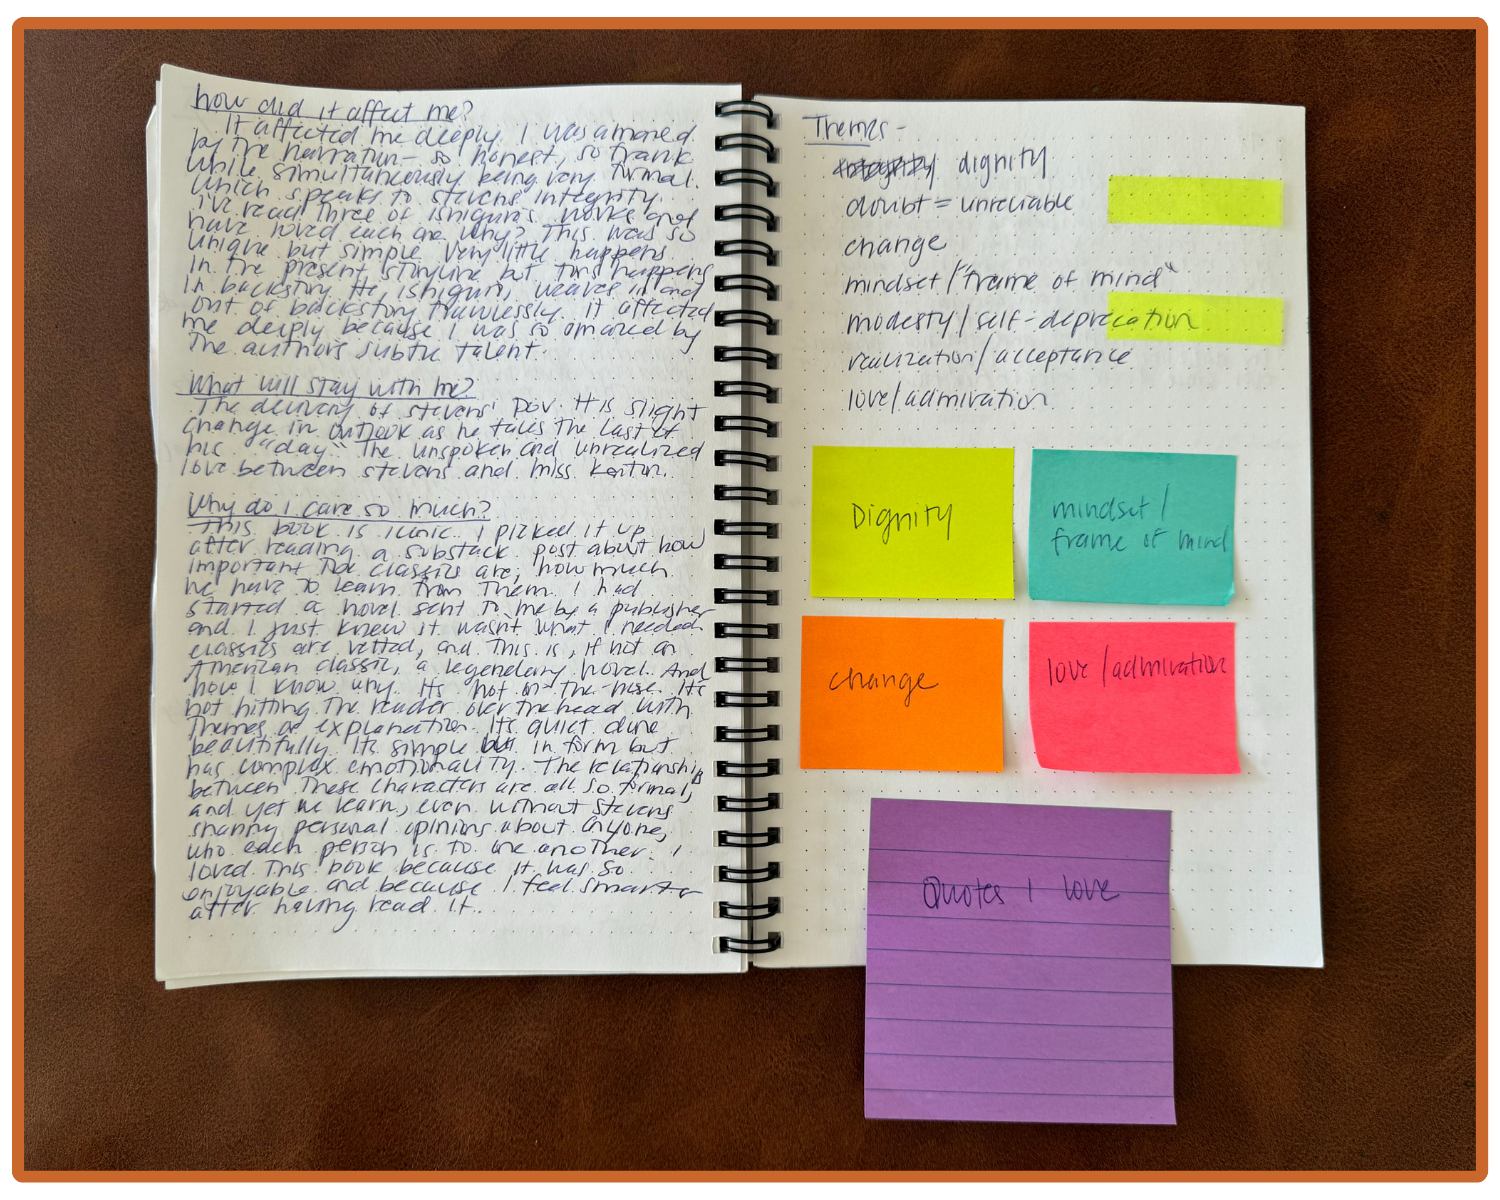 how did it affect me?
It affected me deeply. I was amazed
by the narration - so honest, so frank
while simultaneously being very formal.
Which speaks to Stevens' integrity.
I've read three of Ishiguro's works and
have loved each one. Why? This was so
unique but simple. Very little happens
in the present storyline but tons happens
in backstory. He, Ishiguro, weaves in and
out of backstory flawlessly. It affected
me deeply because I was so amazed by
the author's subtle talent.
What will stay with me?
The delivery of Stevens' POV. His slight
change in outlook as he takes the last of
his "day." The unspoken and unrealized
love between Stevens and Miss. Kenton.
Why do I care so much?
This book is iconic. I picked it up
after reading a substack post about how
important the classics are, how much
we have to learn from them. I had
started a novel sent to me by a publisher
and I just knew it wasn't what I needed.
Classics are vetted, and this is, if not an
American classic, a legendary novel. And
now I know why. It's not on-the-nose. It's
not hitting the reader over the head with
themes or explanation. Its quiet, done
beautifully. Its simple in form but
has complex emotionality. The relationships
between these characters are all so formal,
and yet we learn, even without Stevens
sharing personal opinions about anyone,
who each person is to one another. I
loved this book because it was so
enjoyable and because I feel smarter
after having read it.
Themes -
dignity
doubt = unreliable
change
mindset/"frame of mind"
modesty/self-deprecation
realization/acceptance
love/admiration
Dignity
mindset/
frame of mind
change
love/admiration
Quotes I love